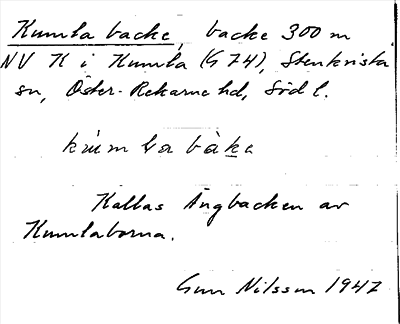 Kumla backe, backe 300 m
NV K i Kumla (G 74), Stenkvista
sn, Öster-Rekarne hd, Södl.
kùm la bàke
Kallas Ängbacken av
Kumlaborna.
Gun Nilsson 1947